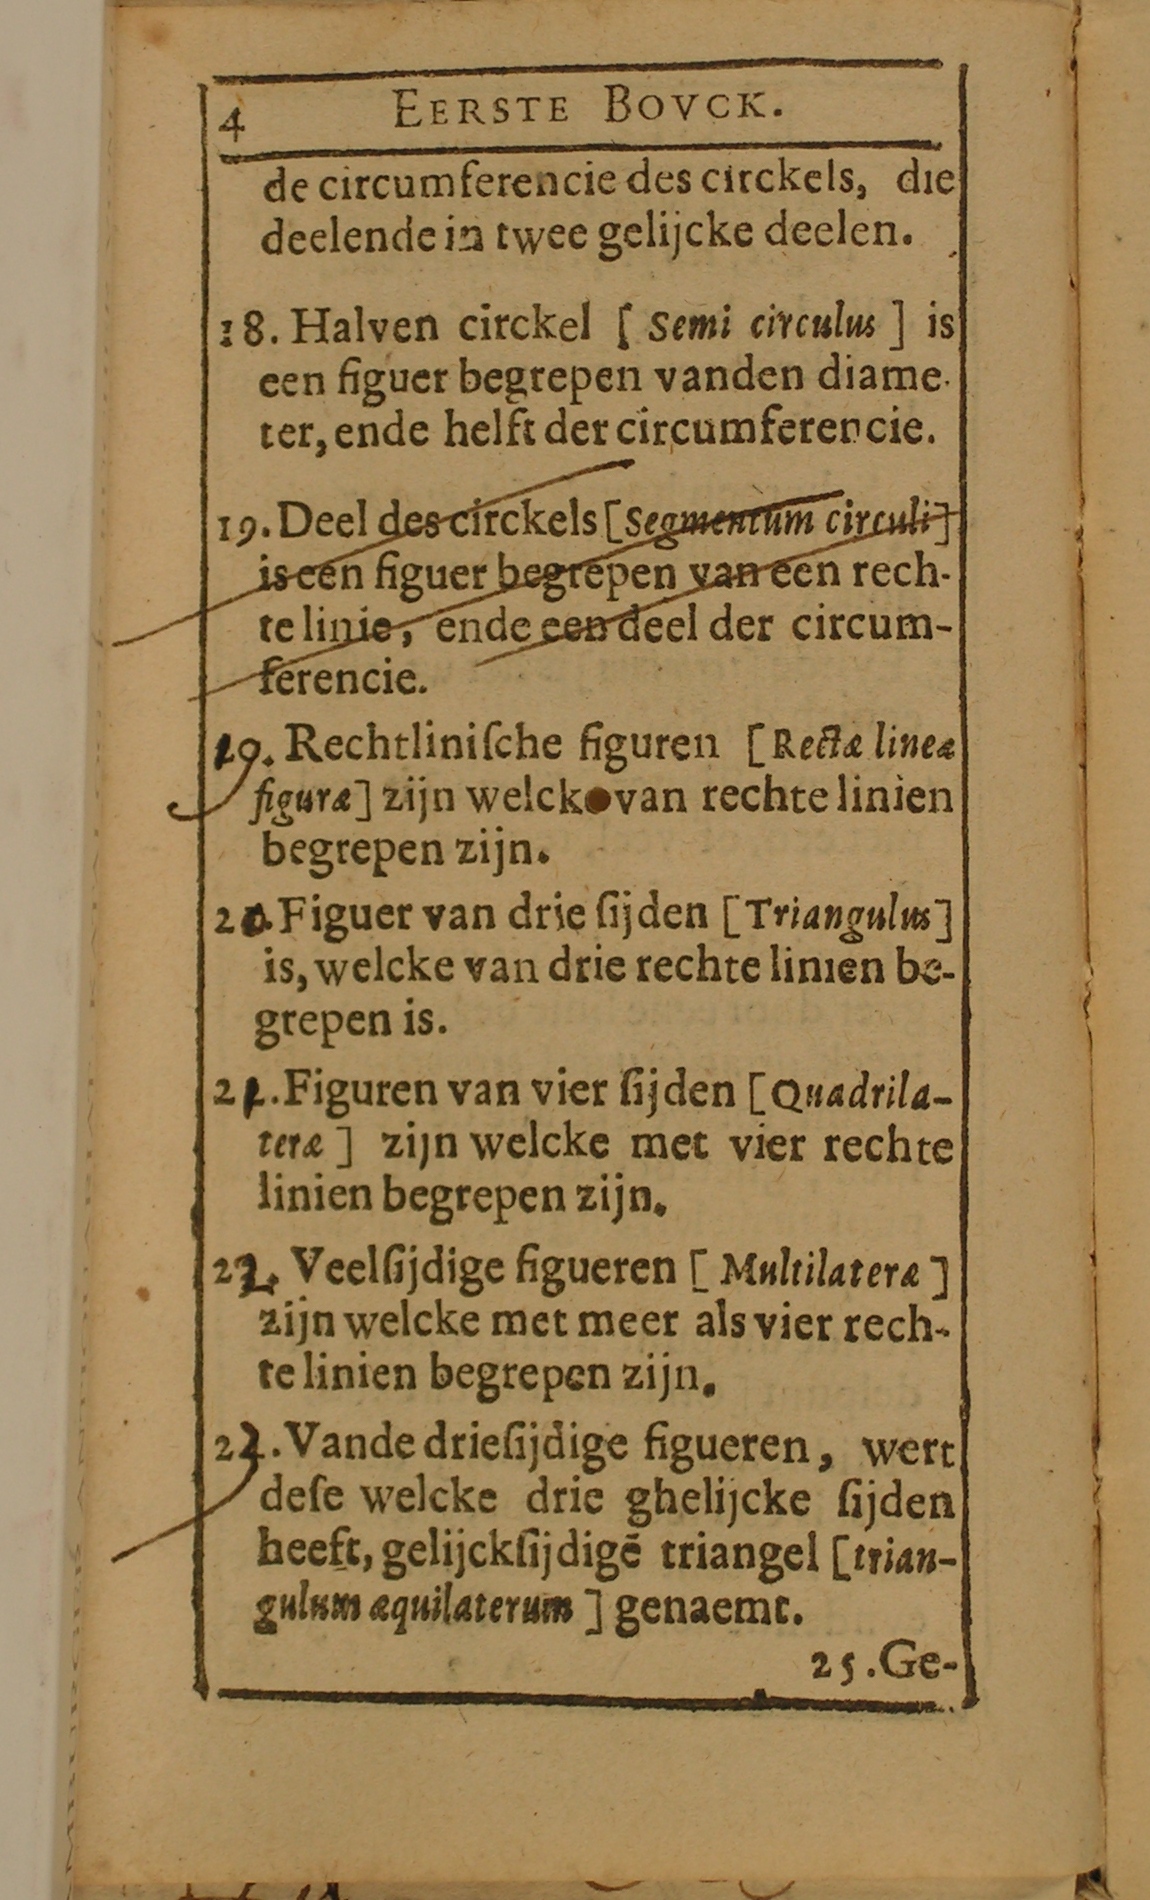 4 EERSTE BOVCK.
de circumferencie des circkels, die
deelende in twee gelijcke deelen.
18. Halven circkel [ Semi circulus ] is
een figuer begrepen vanden diame-
ter, ende helft der circumferencie.
19. Deel des circkels [Segmentum circuli]
is een figuer begrepen van een rech-
te linie, ende een deel der circum-
ferencie.
19. Rechtliniſche figuren [Rectæ lineæ
figuræ] zijn welcke van rechte linien
begrepen zijn.
20. Figuer van drie ſijden [Triangulus]
is, welcke van drie rechte linien be-
grepen is.
21. Figuren van vier ſijden [Quadrila-
teræ ] zijn welcke met vier rechte
linien begrepen zijn.
22. Veelſijdige figueren [ Multilateræ ]
zijn welcke met meer als vier rech-
te linien begrepen zijn.
23. Vande drieſijdige figueren, wert
deſe welcke drie ghelijcke ſijden
heeft, gelijckſijdigē triangel [trian-
gulum æquilaterum ] genaemt.
25. Ge-